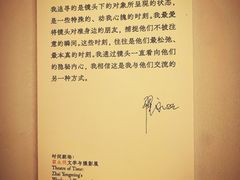 我追寻的是镜头下的对象所呈现的状态,
是一些特殊的、动我心魄的时刻。我最爱
将镜头对准身边的朋友,捕捉他们不被注
意的瞬间。这些时刻,往往是他们最松弛、
最本真的时刻。我通过镜头一直看向他们
的隐秘内心,我相信这是我与他们交流的
另一种方式。
翟永明
时间剧场:
翟永明文学与摄影展
Theatre of Time:
Zhai Yongming's